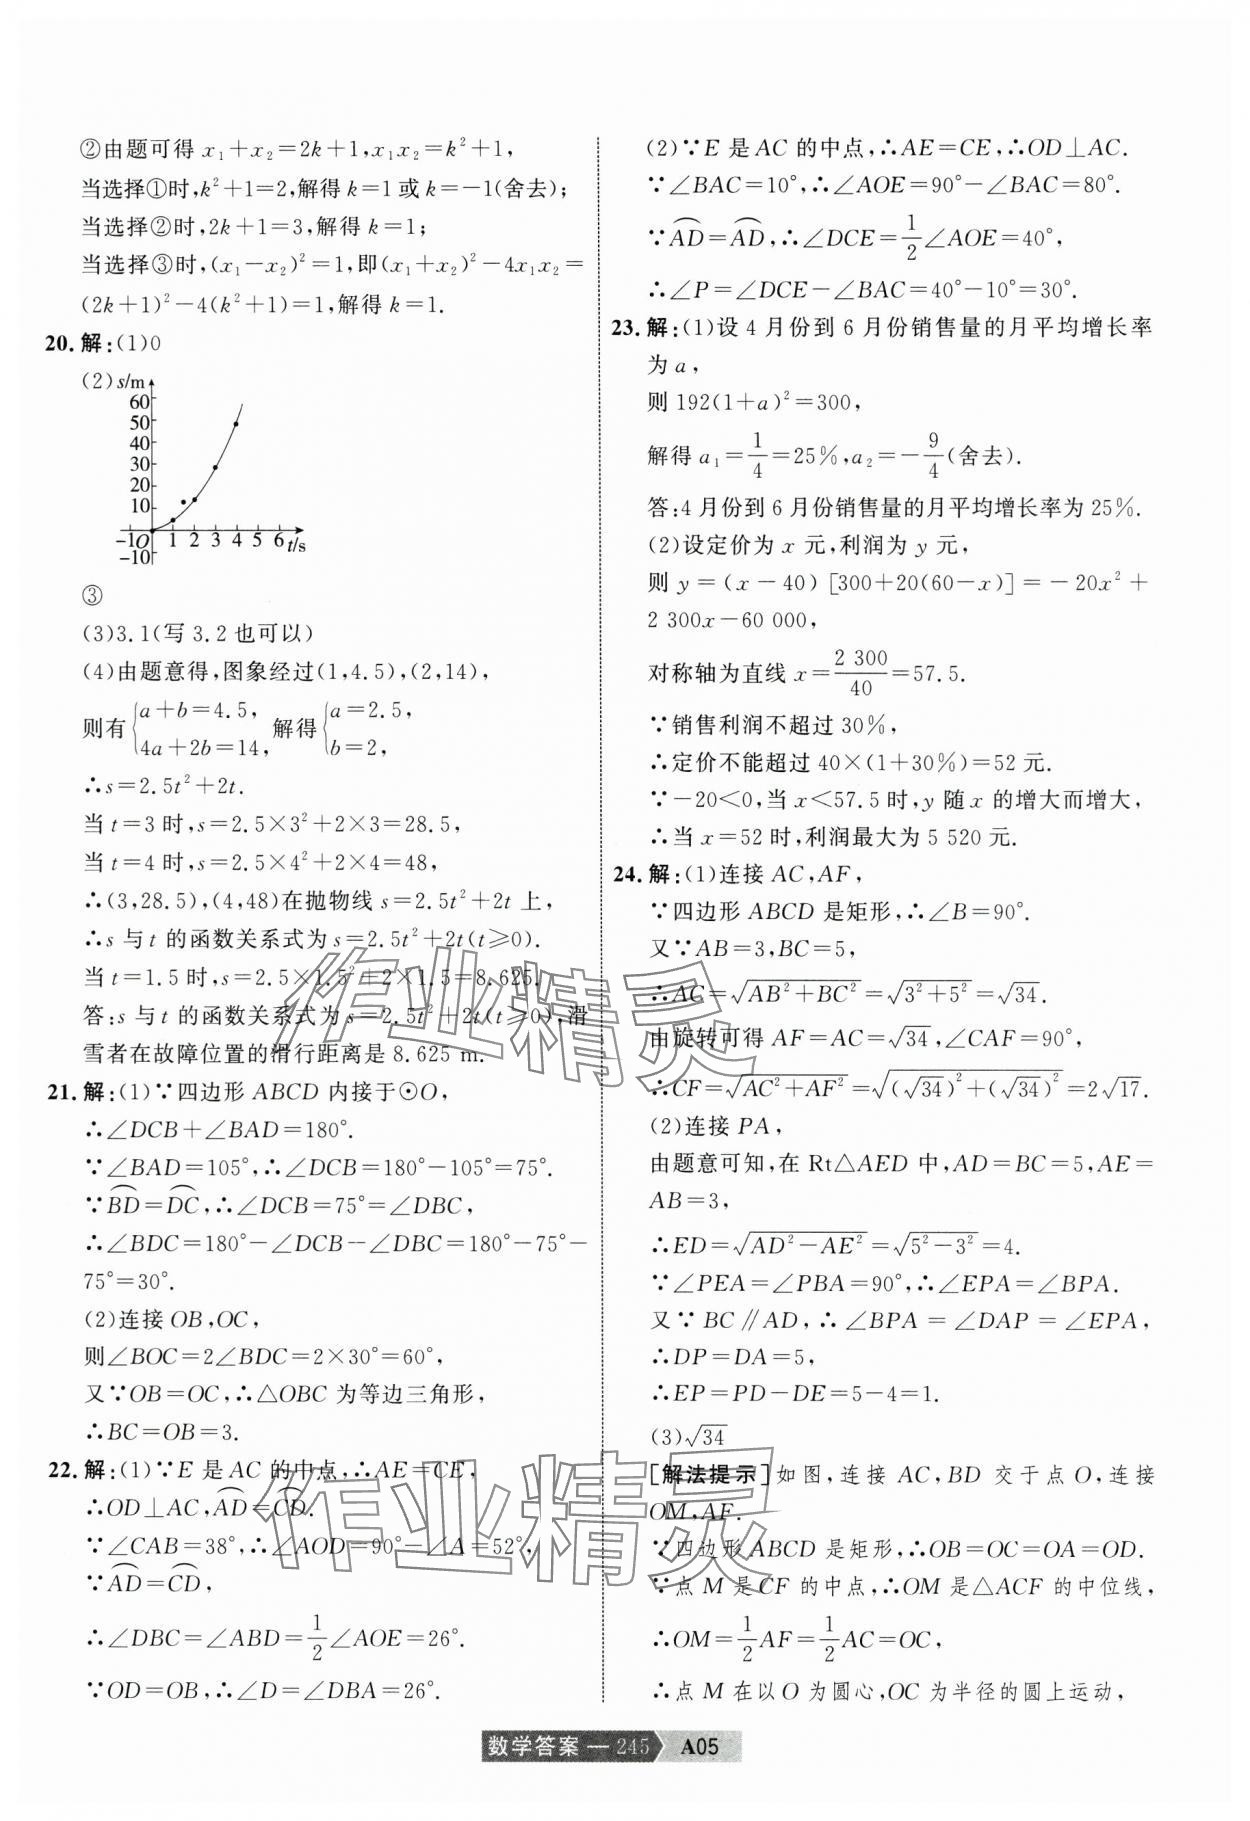 ②由题可得 x₁+x₂=2k+1,x₁x₂=k²+1,
当选择①时,k²+1=2,解得 k=1 或 k=-1(舍去);
当选择②时,2k+1=3,解得 k=1;
当选择③时,(x₁-x₂)²=1,即(x₁+x₂)²-4x₁x₂=
(2k+1)²-4(k²+1)=1,解得 k=1.
20. 解:(1)0
(2) s/m
60
50
40
30
20
10
-1 O 1 2 3 4 5 6 t/s
-10
③
(3)3.1(写 3.2 也可以)
(4)由题意得,图象经过(1,4.5),(2,14),
则有{a+b=4.5, 4a+2b=14, 解得{a=2.5, b=2,
∴s=2.5t²+2t.
当 t=3 时,s=2.5×3²+2×3=28.5,
当 t=4 时,s=2.5×4²+2×4=48,
∴(3,28.5),(4,48)在抛物线 s=2.5t²+2t 上,
∴s 与 t 的函数关系式为 s=2.5t²+2t(t≥0).
当 t=1.5 时,s=2.5×1.5²+2×1.5=8.625.
答:s 与 t 的函数关系式为 s=2.5t²+2t(t≥0),滑
雪者在故障位置的滑行距离是 8.625 m.
21. 解:(1)∵四边形 ABCD 内接于⊙O,
∴∠DCB+∠BAD=180°.
∵∠BAD=105°,∴∠DCB=180°-105°=75°.
∵⌒BD=⌒DC,∴∠DCB=75°=∠DBC,
∴∠BDC=180°-∠DCB-∠DBC=180°-75°-
75°=30°.
(2)连接 OB,OC,
则∠BOC=2∠BDC=2×30°=60°,
又∵OB=OC,∴△OBC 为等边三角形,
∴BC=OB=3.
22. 解:(1)∵E 是 AC 的中点,∴AE=CE,
∴OD⊥AC,⌒AD=⌒CD.
∵∠CAB=38°,∴∠AOD=90°-∠A=52°,
∵⌒AD=⌒CD,
∴∠DBC=∠ABD=1/2∠AOE=26°.
∵OD=OB,∴∠D=∠DBA=26°.
(2)∵E 是 AC 的中点,∴AE=CE,∴OD⊥AC.
∵∠BAC=10°,∴∠AOE=90°-∠BAC=80°.
∵⌒AD=⌒AD,∴∠DCE=1/2∠AOE=40°,
∴∠P=∠DCE-∠BAC=40°-10°=30°.
23. 解:(1)设 4 月份到 6 月份销售量的月平均增长率
为 a,
则 192(1+a)²=300,
解得 a₁=1/4=25%,a₂=-9/4(舍去).
答:4 月份到 6 月份销售量的月平均增长率为 25%.
(2)设定价为 x 元,利润为 y 元,
则 y=(x-40)[300+20(60-x)]=-20x²+
2 300x-60 000,
对称轴为直线 x=2 300/40=57.5.
∵销售利润不超过 30%,
∴定价不能超过 40×(1+30%)=52 元.
∵-20<0,当 x<57.5 时,y 随 x 的增大而增大,
∴当 x=52 时,利润最大为 5 520 元.
24. 解:(1)连接 AC,AF,
∵四边形 ABCD 是矩形,∴∠B=90°.
又∵AB=3,BC=5,
∴AC=√(AB²+BC²)=√(3²+5²)=√34.
由旋转可得 AF=AC=√34,∠CAF=90°,
∴CF=√(AC²+AF²)=√((√34)²+(√34)²)=2√17.
(2)连接 PA,
由题意可知,在 Rt△AED 中,AD=BC=5,AE=
AB=3,
∴ED=√(AD²-AE²)=√(5²-3²)=4.
∵∠PEA=∠PBA=90°,∴∠EPA=∠BPA.
又∵BC∥AD,∴∠BPA=∠DAP=∠EPA,
∴DP=DA=5,
∴EP=PD-DE=5-4=1.
(3)√34
[解法提示]如图,连接 AC,BD 交于点 O,连接
OM,AF.
∵四边形 ABCD 是矩形,∴OB=OC=OA=OD.
∵点 M 是 CF 的中点,∴OM 是△ACF 的中位线,
∴OM=1/2AF=1/2AC=OC,
∴点 M 在以 O 为圆心,OC 为半径的圆上运动,
作业精灵
作业精灵
数学答案 — 245 A05